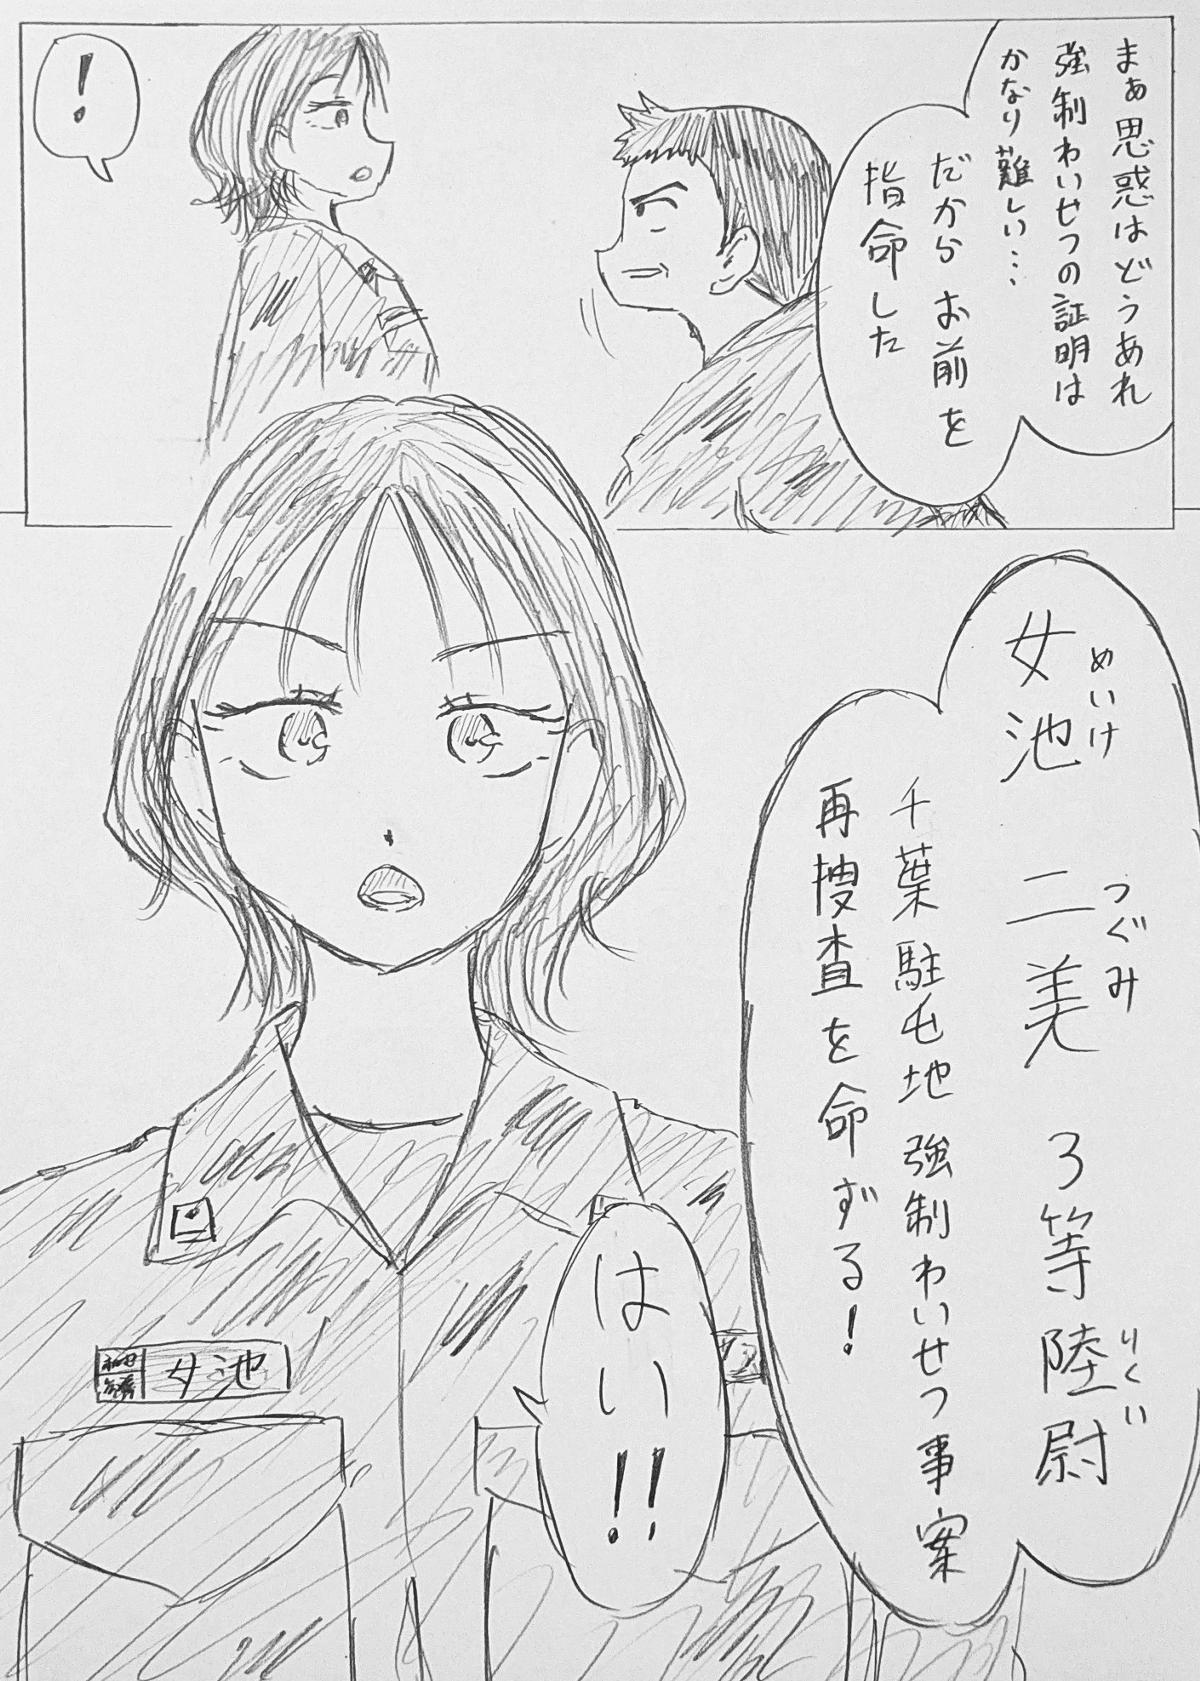 まぁ思惑はどうあれ
強制わいせつの証明は
かなり難しい…
だから お前を
指命した
!
女池 二美 3等陸尉
めいけ つぐみ りくい
千葉駐屯地 強制わいせつ事案
再捜査を命ずる!
はい!!
女池